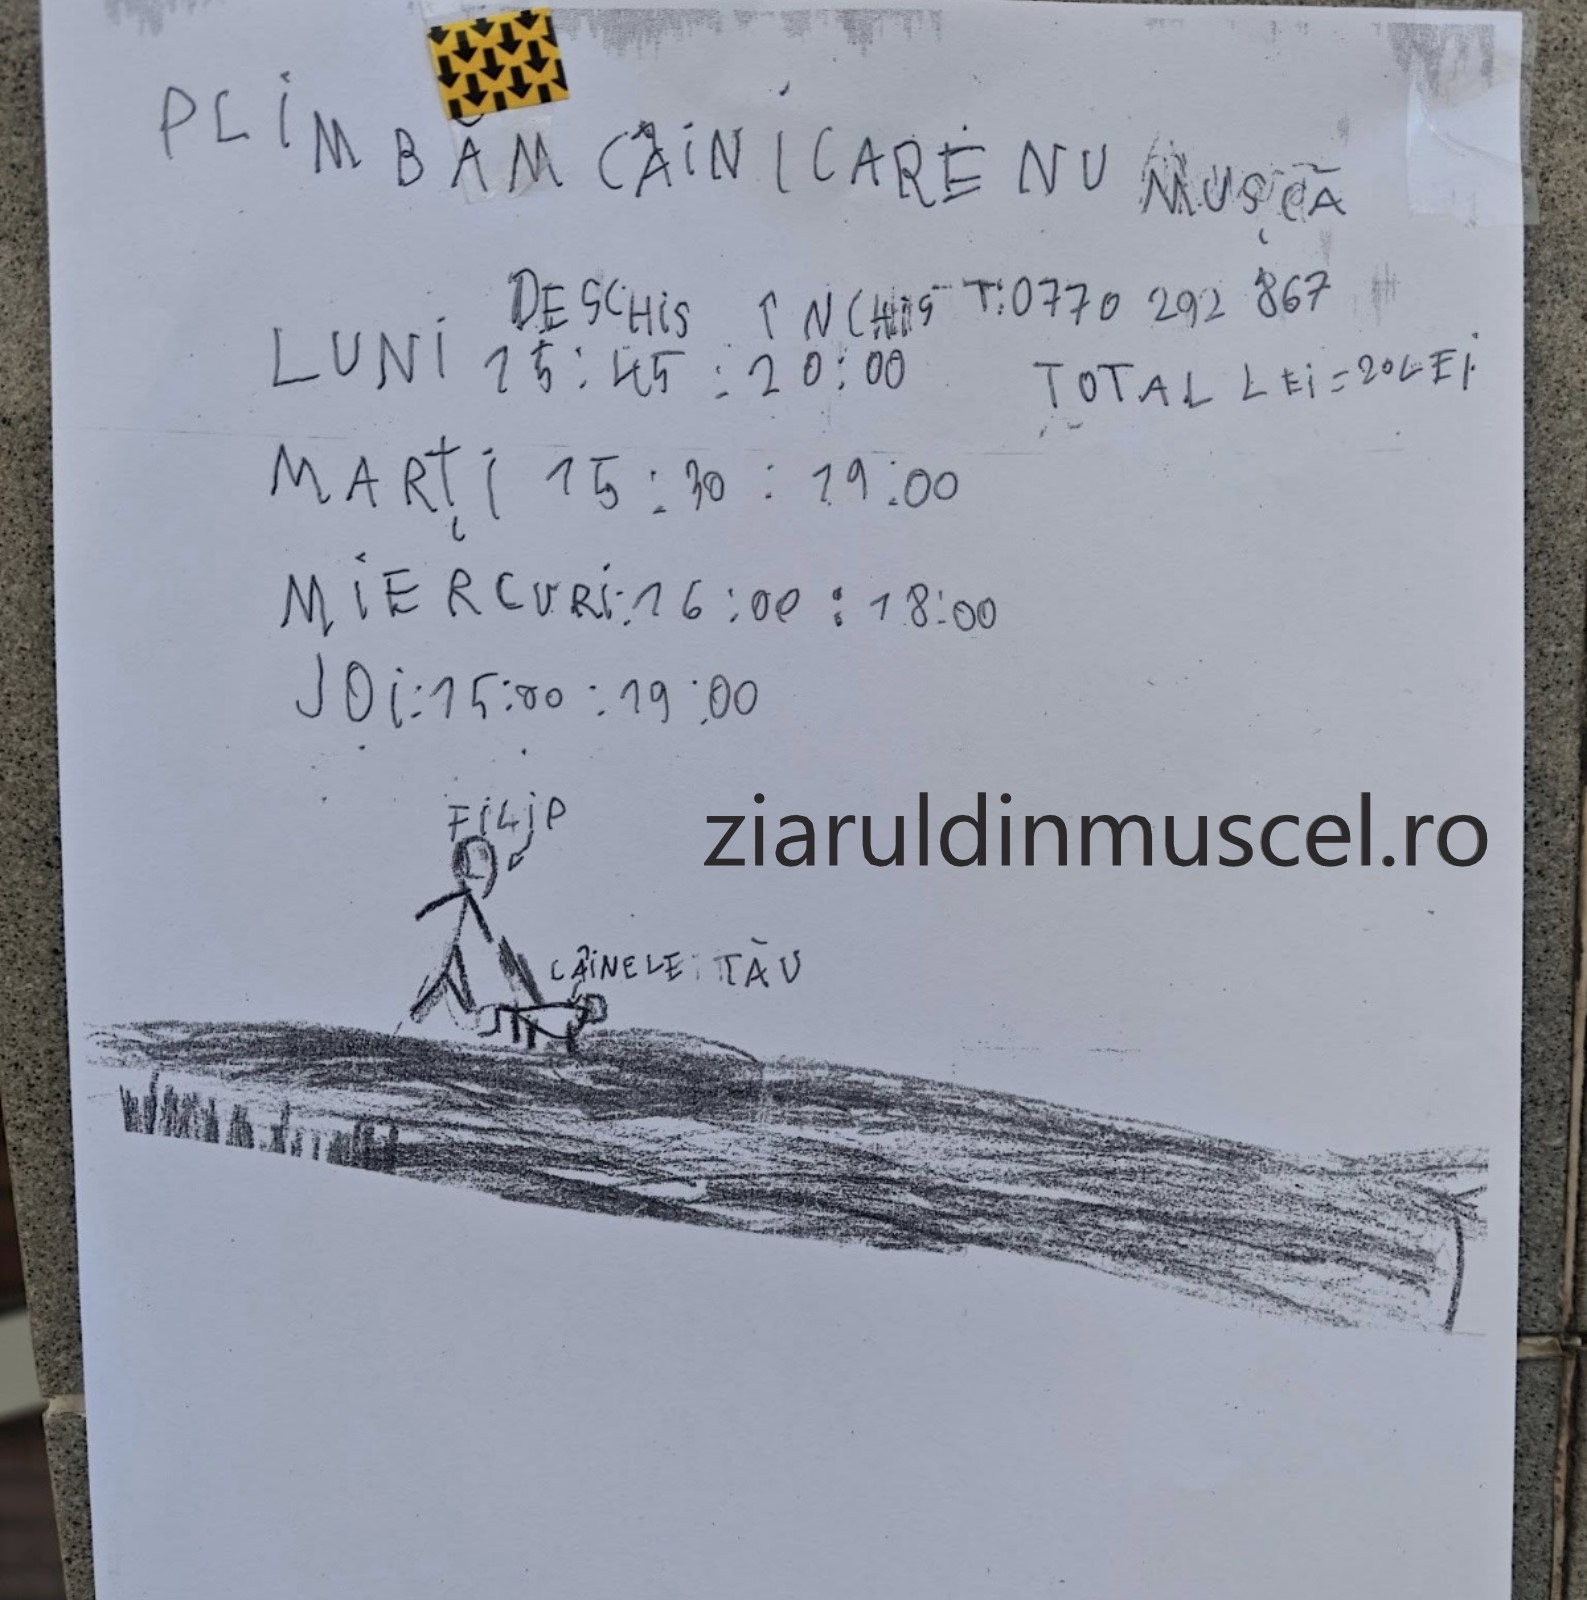 PLIMBĂM CÂINI CARE NU MUȘCĂ
DESCHIS ÎNCHIS T:0770 292 867
LUNI 15:45:20:00
TOTAL LEI=20LEI
MARȚI 15:30:19:00
MIERCURI:16:00:18:00
JOI:15:00:19:00
FILIP
ziaruldinmuscel.ro
CÂINELE TĂU